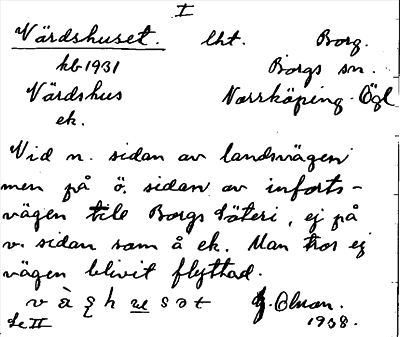 I
Värdshuset. lht. Borg.
kb 1931 Borgs sn.
Värdshus Norrköping. Ögl
ek.
Vid n. sidan av landsvägen
men på ö. sidan av inforts-
vägen till Borgs säteri, ej på
v. sidan som å ek. Man tror ej
vägen blivit flyttad.
1938.